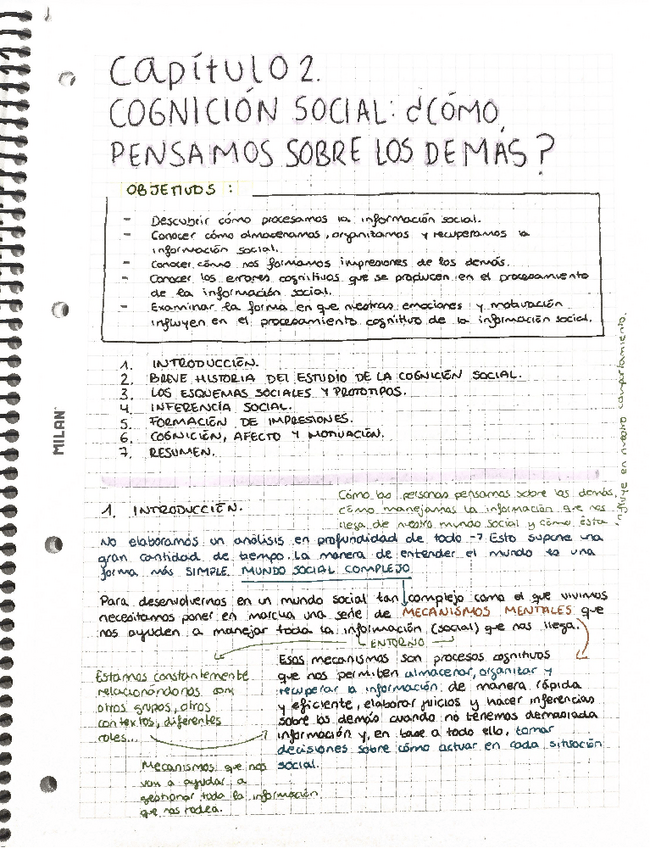 Capítulo 2.
COGNICIÓN SOCIAL: ¿CÓMO
PENSAMOS SOBRE LOS DEMÁS?
OBJETIVOS :
- Descubrir cómo procesamos la información social.
- Conocer cómo almacenamos, organizamos y recuperamos la
información social.
- Conocer cómo nos formamos impresiones de los demás.
- Conocer los errores cognitivos que se producen en el procesamiento
de la información social.
- Examinar la forma en que nuestras emociones y motivación
influyen en el procesamiento cognitivo de la información social.
1. INTRODUCCIÓN.
2. BREVE HISTORIA DEL ESTUDIO DE LA COGNICIÓN SOCIAL.
3. LOS ESQUEMAS SOCIALES Y PROTOTIPOS.
4. INFERENCIA SOCIAL.
5. FORMACIÓN DE IMPRESIONES.
6. COGNICIÓN, AFECTO Y MOTIVACIÓN.
7. RESUMEN.
MILAN
1. INTRODUCCIÓN.
Cómo las personas pensamos sobre los demás,
cómo manejamos la información que nos
llega de nuestro mundo social y cómo ésta
influye en nuestro comportamiento.
No elaboramos un análisis en profundidad de todo → Esto supone una
gran cantidad de tiempo. La manera de entender el mundo es una
forma más SIMPLE. MUNDO SOCIAL COMPLEJO
Para desenvolvernos en un mundo social tan complejo como el que vivimos
necesitamos poner en marcha una serie de MECANISMOS MENTALES que
nos ayuden a manejar toda la información (social) que nos llega.
ENTORNO
Estamos constantemente
relacionándonos con
otros grupos, otros
contextos, diferentes
roles...
Esos mecanismos son procesos cognitivos
que nos permiten almacenar, organizar y
recuperar la información de manera rápida
y eficiente, elaborar juicios y hacer inferencias
sobre los demás cuando no tenemos demasiada
información y, en base a todo ello, tomar
decisiones sobre cómo actuar en cada situación
social.
Mecanismos que nos
van a ayudar a
gestionar toda la información
que nos rodea.